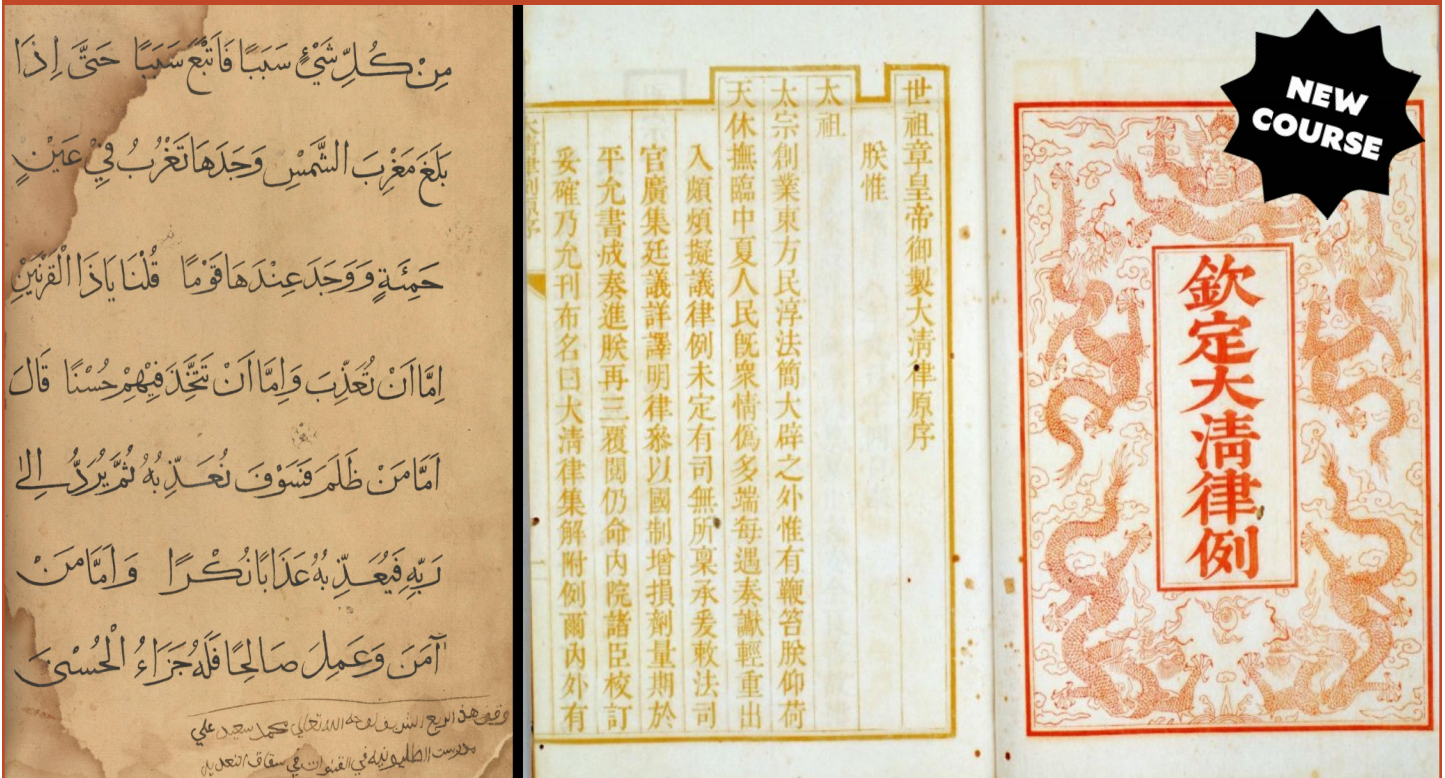 مِنْ كُلِّ شَيْءٍ سَبَبًا فَاَتْبَعَ سَبَبًا حَتَّى اِذَا
بَلَغَ مَغْرِبَ الشَّمْسِ وَجَدَهَا تَغْرُبُ فِيْ عَيْنٍ
حَمِئَةٍ وَوَجَدَ عِنْدَهَا قَوْمًا قُلْنَا يَاذَا الْقَرْنَيْنِ
اِمَّا اَنْ تُعَذِّبَ وَاِمَّا اَنْ تَتَّخِذَ فِيْهِمْ حُسْنًا قَالَ
اَمَّا مَنْ ظَلَمَ فَسَوْفَ نُعَذِّبُهُ ثُمَّ يُرَدُّ اِلٰى
رَبِّهِ فَيُعَذِّبُهُ عَذَابًا نُكْرًا وَاَمَّا مَنْ
آمَنَ وَعَمِلَ صَالِحًا فَلَهُ جَزَاءُ الْحُسْنٰى
هذا الربع الشريف لوجه الله تعالى محمد سعيد علي
في القنوات في
NEW
COURSE
欽定大清律例
世祖章皇帝御製大清律原序
朕惟
太祖
太宗創業東方民淳法簡大辟之外惟有鞭笞朕仰荷
天休撫臨中夏人民旣衆情僞多端每遇奏讞輕重出
入頗煩擬議律例未定有司無所稟承爰敕法司
官廣集廷議詳譯明律叅以國制增損劑量期於
平允書成奏進朕再三覆閱仍命內院諸臣校訂
妥確乃允刊布名曰大清律集解附例爾內外有